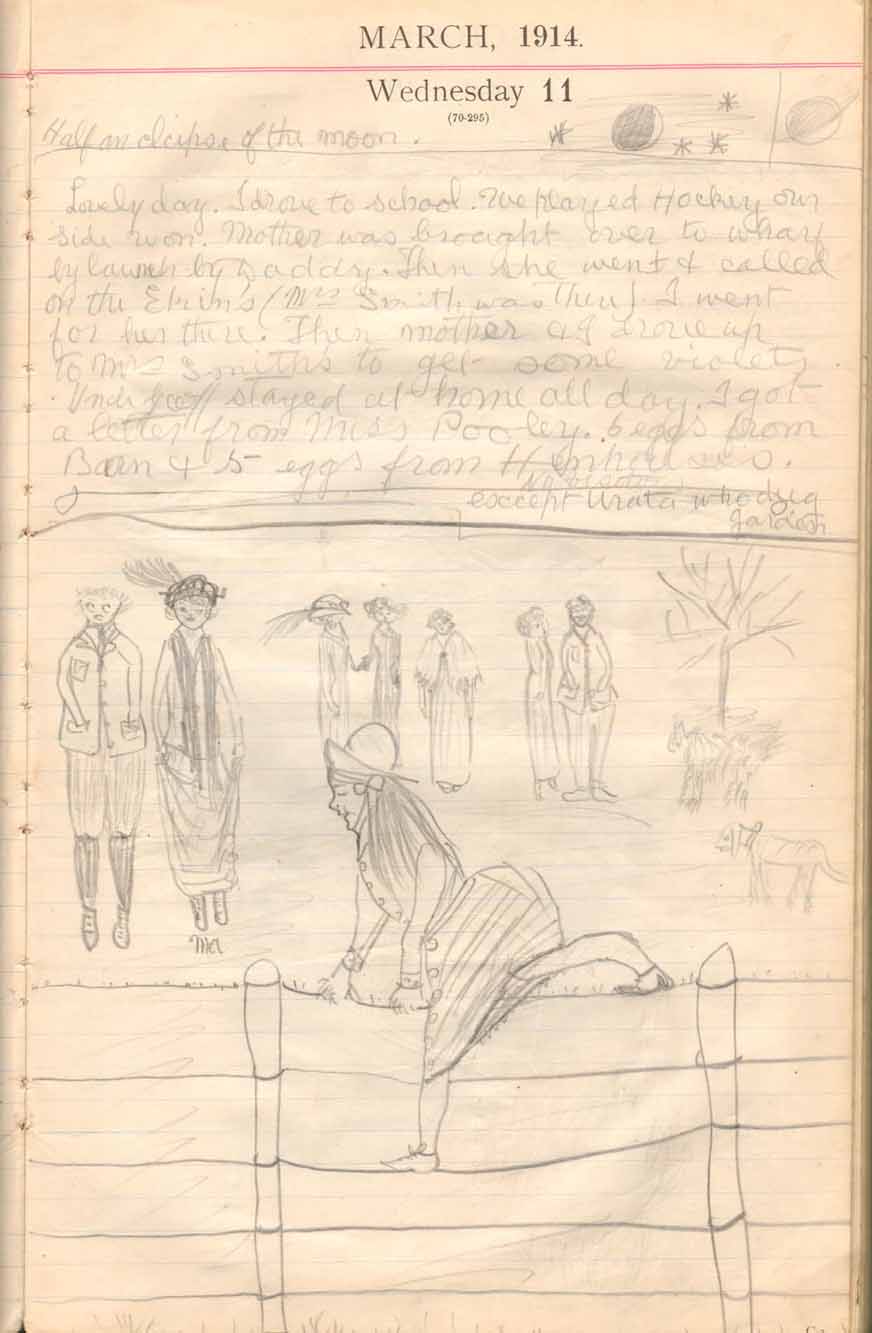 MARCH, 1914.
Wednesday 11
(70-295)
Half an elcipse of the moon.
Lovely day. I drove to school. We played Hockey our
side won. Mother was brought over to wharf
by launch by Daddy. Then she went & called
on the Ekin's (Mrs Smith was there) I went
for her there. Then mother & I drove up
to Mrs Smiths to get some violets.
Uncle Geoff stayed at home all day. I got
a letter from Miss Pooley. 6 eggs from
Barn & 5 eggs from Henhouses.
except Urata who dug
Garden
Me